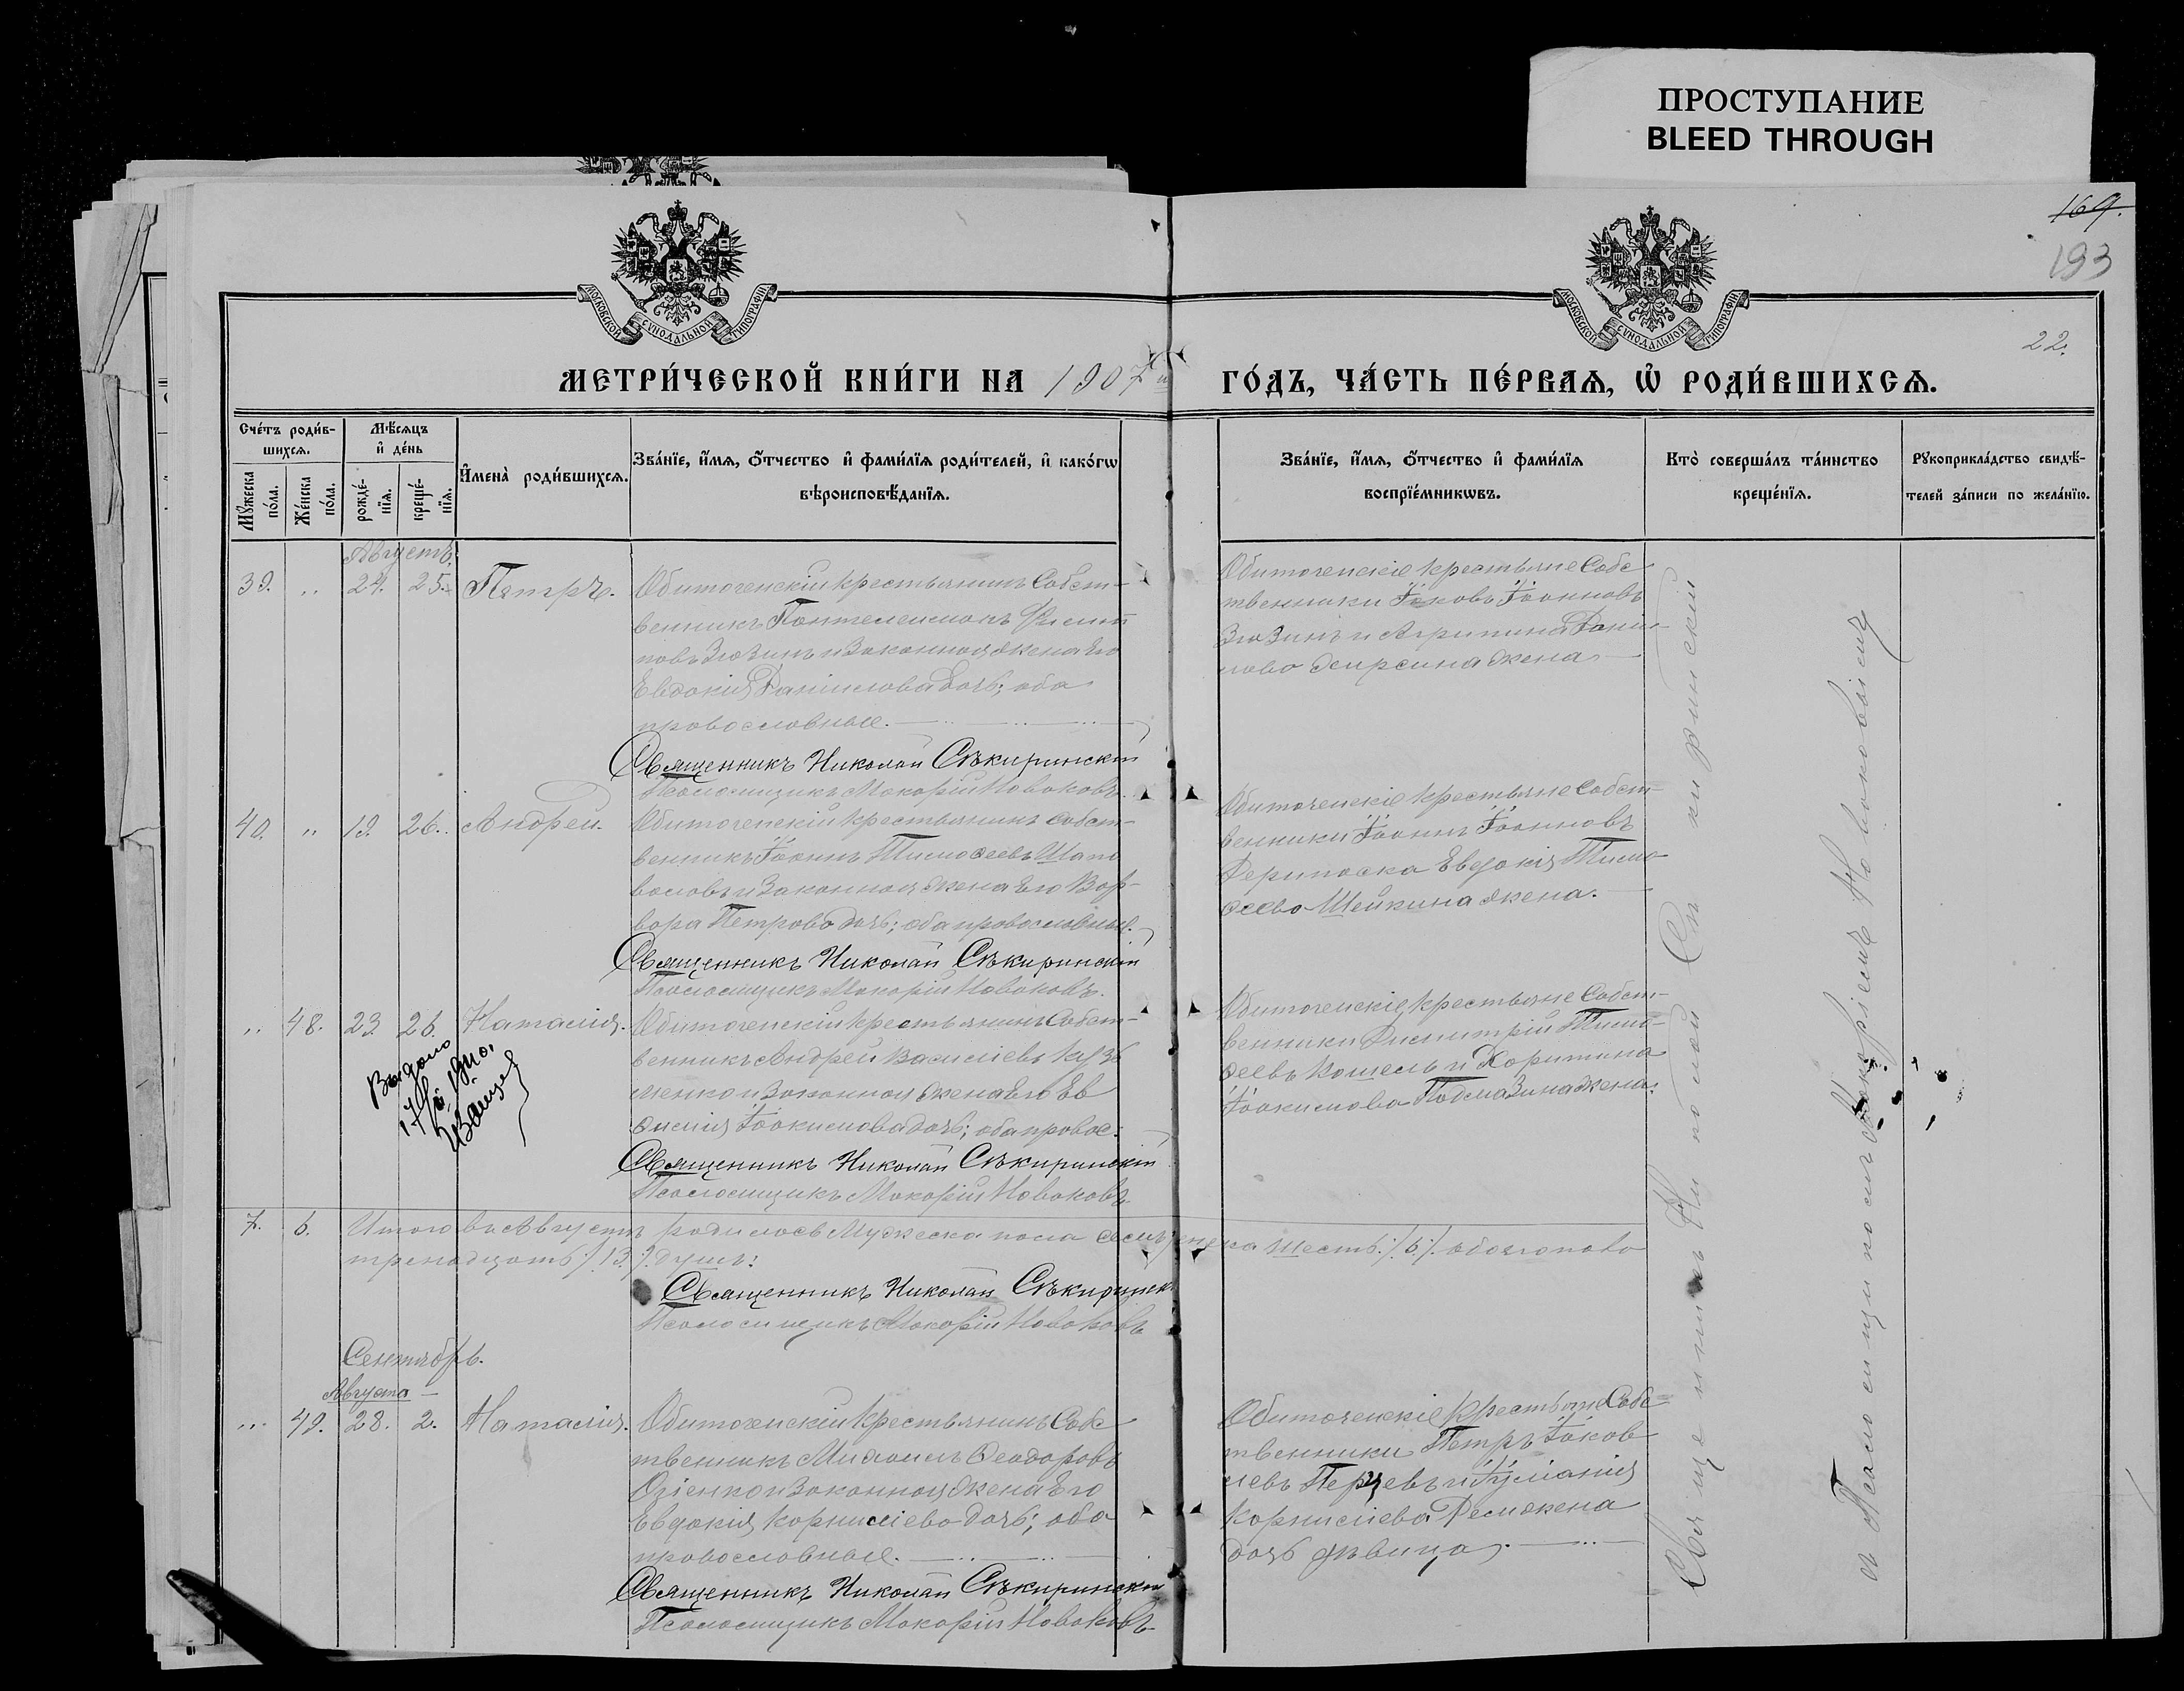 ПРОСТУПАНИЕ
BLEED THROUGH
169.
193
МОСКОВСКОЙ СУНОДАЛЬНОЙ ТИПОГРАФІИ
МОСКОВСКОЙ СУНОДАЛЬНОЙ ТИПОГРАФІИ
22.
МЕТРИ́ЧЕСКОЙ КНИ́ГИ НА 1907й
ГО́ДЪ, ЧА́СТЬ ПЕ́РВАЯ, Ѡ҆ РОДИ́ВШИХСЯ.
Сче́тъ роди́в-
шихся.
Мꙋ́жеска по́ла.
Же́нска по́ла.
Мѣ́сяцъ
и҆ де́нь
рожде́-
нїя.
креще́-
нїя.
И҆мена̀ роди́вшихся.
Зва́нїе, и҆́мя, ѻ҆́тчество и҆ фами́лїя роди́телей, и҆ како́гѡ
вѣроисповѣ́данїя.
Зва́нїе, и҆́мя, ѻ҆́тчество и҆ фами́лїя
воспрїе́мникѡвъ.
Кто̀ соверша́лъ та́инство
креще́нїя.
Рꙋкоприкла́дство свидѣ́-
телей за́писи по жела́нїю.
Августъ.
39. " 24. 25. Петръ.
Обиточенскій крестьянинъ Собст-
венникъ Пантелеимонъ Филип
повъ Зюзинъ и Законная жена Его
Евдокія Даніилова дочь; оба
православные.
Священникъ Николай Сѣкиринскій
Псаломщикъ Макарій Новаковъ.
Обиточенскіе крестьяне Собс
твенники Іаковъ Іоанновъ
Зюзинъ и Агрипина Даніи-
лова жена
40. " 19. 26. Андрей.
Обиточенскій крестьянинъ Собст-
венникъ Іоаннъ Тимоѳеевъ Шапо
валовъ и Законная жена Его Вар-
вара Петрова дочь; оба православные.
Священникъ Николай Сѣкиринскій
Псаломщикъ Макарій Новаковъ.
Обиточенскіе крестьяне Собст-
венники Іоаннъ Іоанновъ
Дерипаска Евдокія Тимо
ѳеева Шейкина жена.
" 48. 23 26. Наталія.
Выдано
Обиточенскій крестьянинъ Собст-
венникъ Андрей Василіевъ Кузь
менко и Законная жена Его Ев
ѳимія Іоакимова дочь; оба правос:
Священникъ Николай Сѣкиринскій
Псаломщикъ Макарій Новаковъ
Обиточенскіе крестьяне Собст-
венники Димитрій Тимо-
ѳеевъ Кошель и Харитина
Іоакимова Подмазина жена.
7. 6. Итого въ Августѣ родилось Мужеска пола семь женска шесть /6/. обоего пола
тренадцать /13/ душъ:
Священникъ Николай Сѣкиринск
Псаломщикъ Макарій Новаковъ
Сентябрь.
Августа
" 49. 28. 2. Наталія.
Обиточенскій крестьянинъ Собс
твенникъ Михаилъ Ѳеодоровъ
Огіенко и Законная жена Его
Евдокія Корниліева дочь; оба
православные.
Священникъ Николай Сѣкиринскій
Псаломщикъ Макарій Новаковъ
Обиточенскіе крестьяне Собс
твенники Петръ Іаков
левъ Перцевъ и Іуліанія
Корниліева
дочь дѣвица.
Священникъ Николай Сѣкиринскій
съ Псаломщикомъ Макаріемъ Новаковымъ